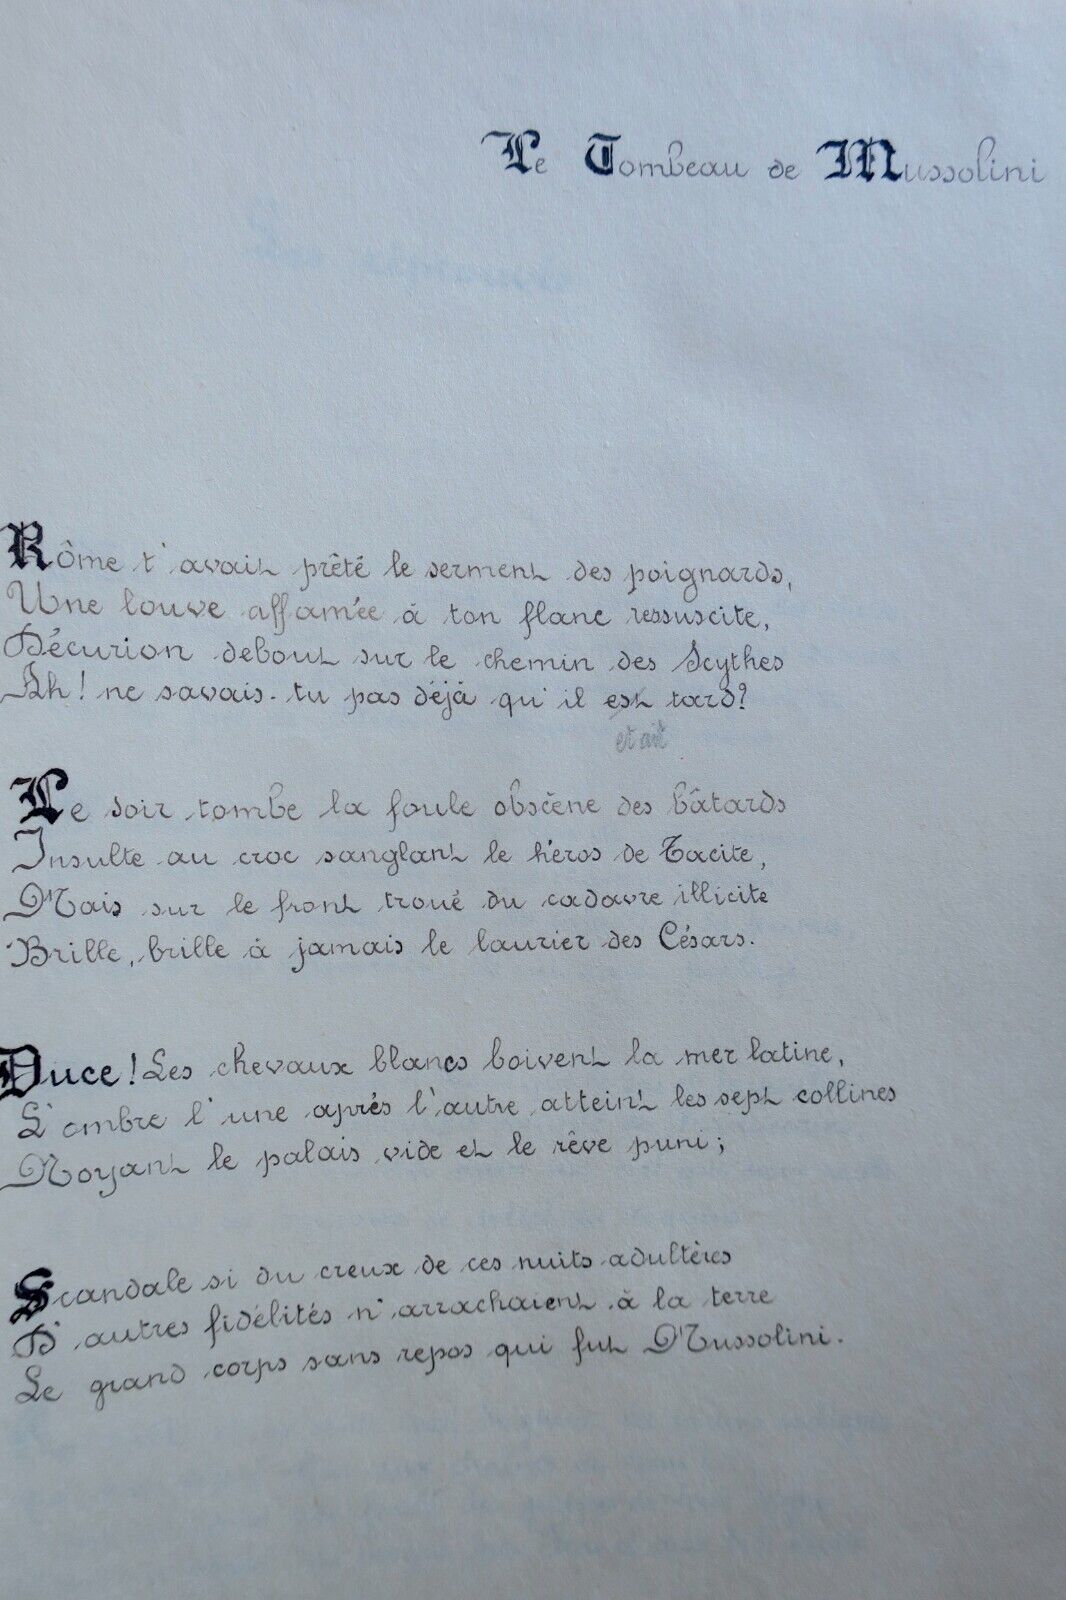 Le Tombeau de Mussolini
Rôme t'avait prêté le serment des poignards,
Une louve affamée à ton flanc ressuscite,
Décurion debout sur le chemin des Scythes
Ah! ne savais-tu pas déjà qu'il est tard?
etait
Le soir tombe la foule obscène des bâtards
Insulte au croc sanglant le héros de Tacite,
Mais sur le front troué du cadavre illicite
Brille, brille à jamais le laurier des Césars.
Duce! Les chevaux blancs boivent la mer latine,
L'ombre l'une après l'autre atteint les sept collines
Noyant le palais vide et le rêve puni;
Scandale si du creux de ces nuits adultères
D'autres fidélités n'arrachaient à la terre
Le grand corps sans repos qui fut Mussolini.